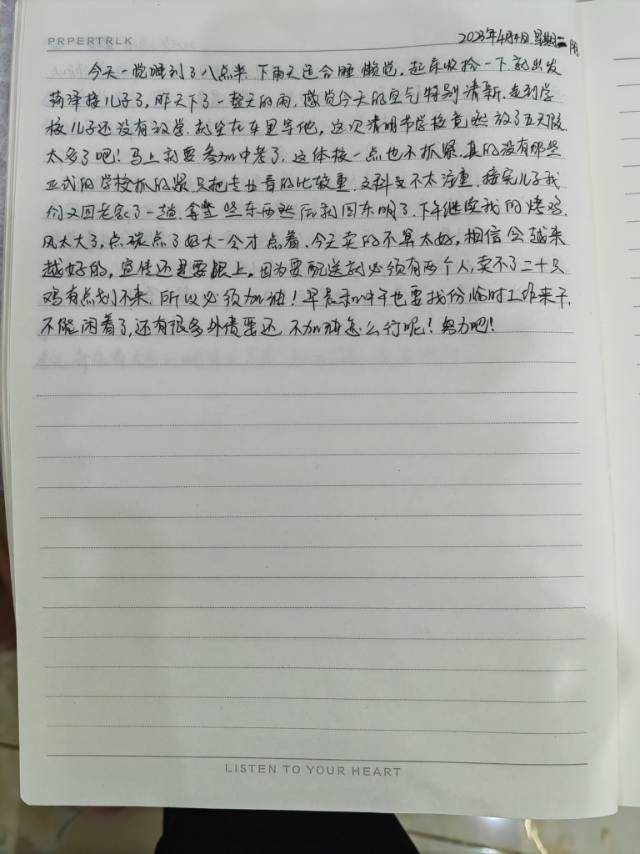 PRPERTRLK 2023年4月4日 星期二 阴
今天一觉睡到了八点半 下雨天适合睡懒觉.起床收拾一下就出发
菏泽接儿子了,昨天下了一整天的雨,感觉今天的空气特别清新.走到学
校儿子还没有放学.就坐在车里等他,这次清明节学校竟然放了五天假
太多了吧!马上就要参加中考了,这体校一点也不抓紧.真的没有那些
正式的学校抓的紧.只把专业看的比较重.文科又不太注重.接完儿子我
们又回老家了一趟.拿些东西然后就回东明了.下午继续我的烤鸡.
风太大了,点碳点了好大一会才点着.今天卖的不算太好,相信会越来
越好的,宣传还是要跟上,因为要配送就必须有两个人,卖不了二十只
鸡有点划不来.所以必须加油!早上的时候也要找份临时工作来干,
不能闲着了,还有很多外债要还 不加油怎么行呢!努力吧!
LISTEN TO YOUR HEART